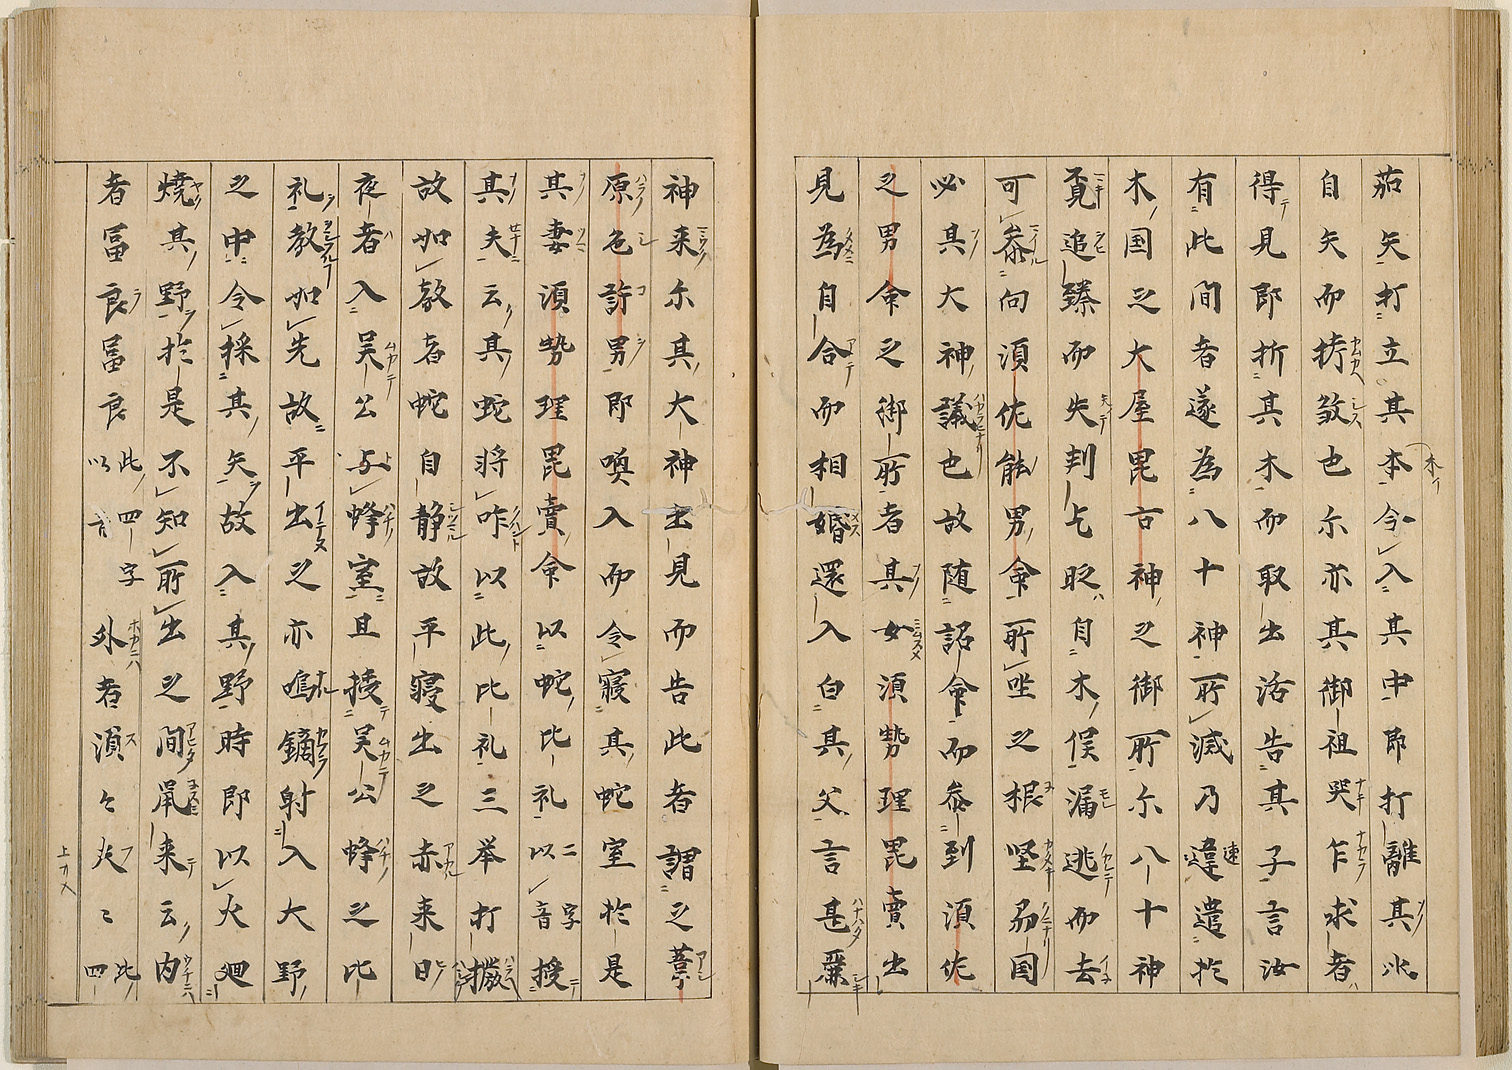 茄矢打立其本令入其中即打離其氷
自矢而拷殺也尓亦其御祖哭乍求者
得見即折其木而取出活告其子言汝
有此間者遂為八十神所滅乃違遣於
木国之大屋毘古神之御所尓八十神
覓追臻而矢刺乞眨自木俣漏逃而去
可参向須佐能男命所坐之根堅州国
必其大神議也故随詔命而参到須佐
之男命之御所者其女須勢理毘賣出
見為自合而相婚還入白其父言甚麗
神来尓其大神出見而告此者謂之葦
原色許男即喚入而令寝其蛇室於是
其妻須勢理毘賣命以蛇比礼二字以音授
其夫云其蛇将咋以此比礼三挙打撥
故如教者蛇自静故平寝出之赤来日
夜者入呉公与蜂室且授呉公蜂之比
礼教如先故平出之亦鳴鏑射入大野
之中令採其矢故入其野時即以火廻
焼其野於是不知所出之間鼠来云内
者冨良冨良此四字以音外者須々夫々此四